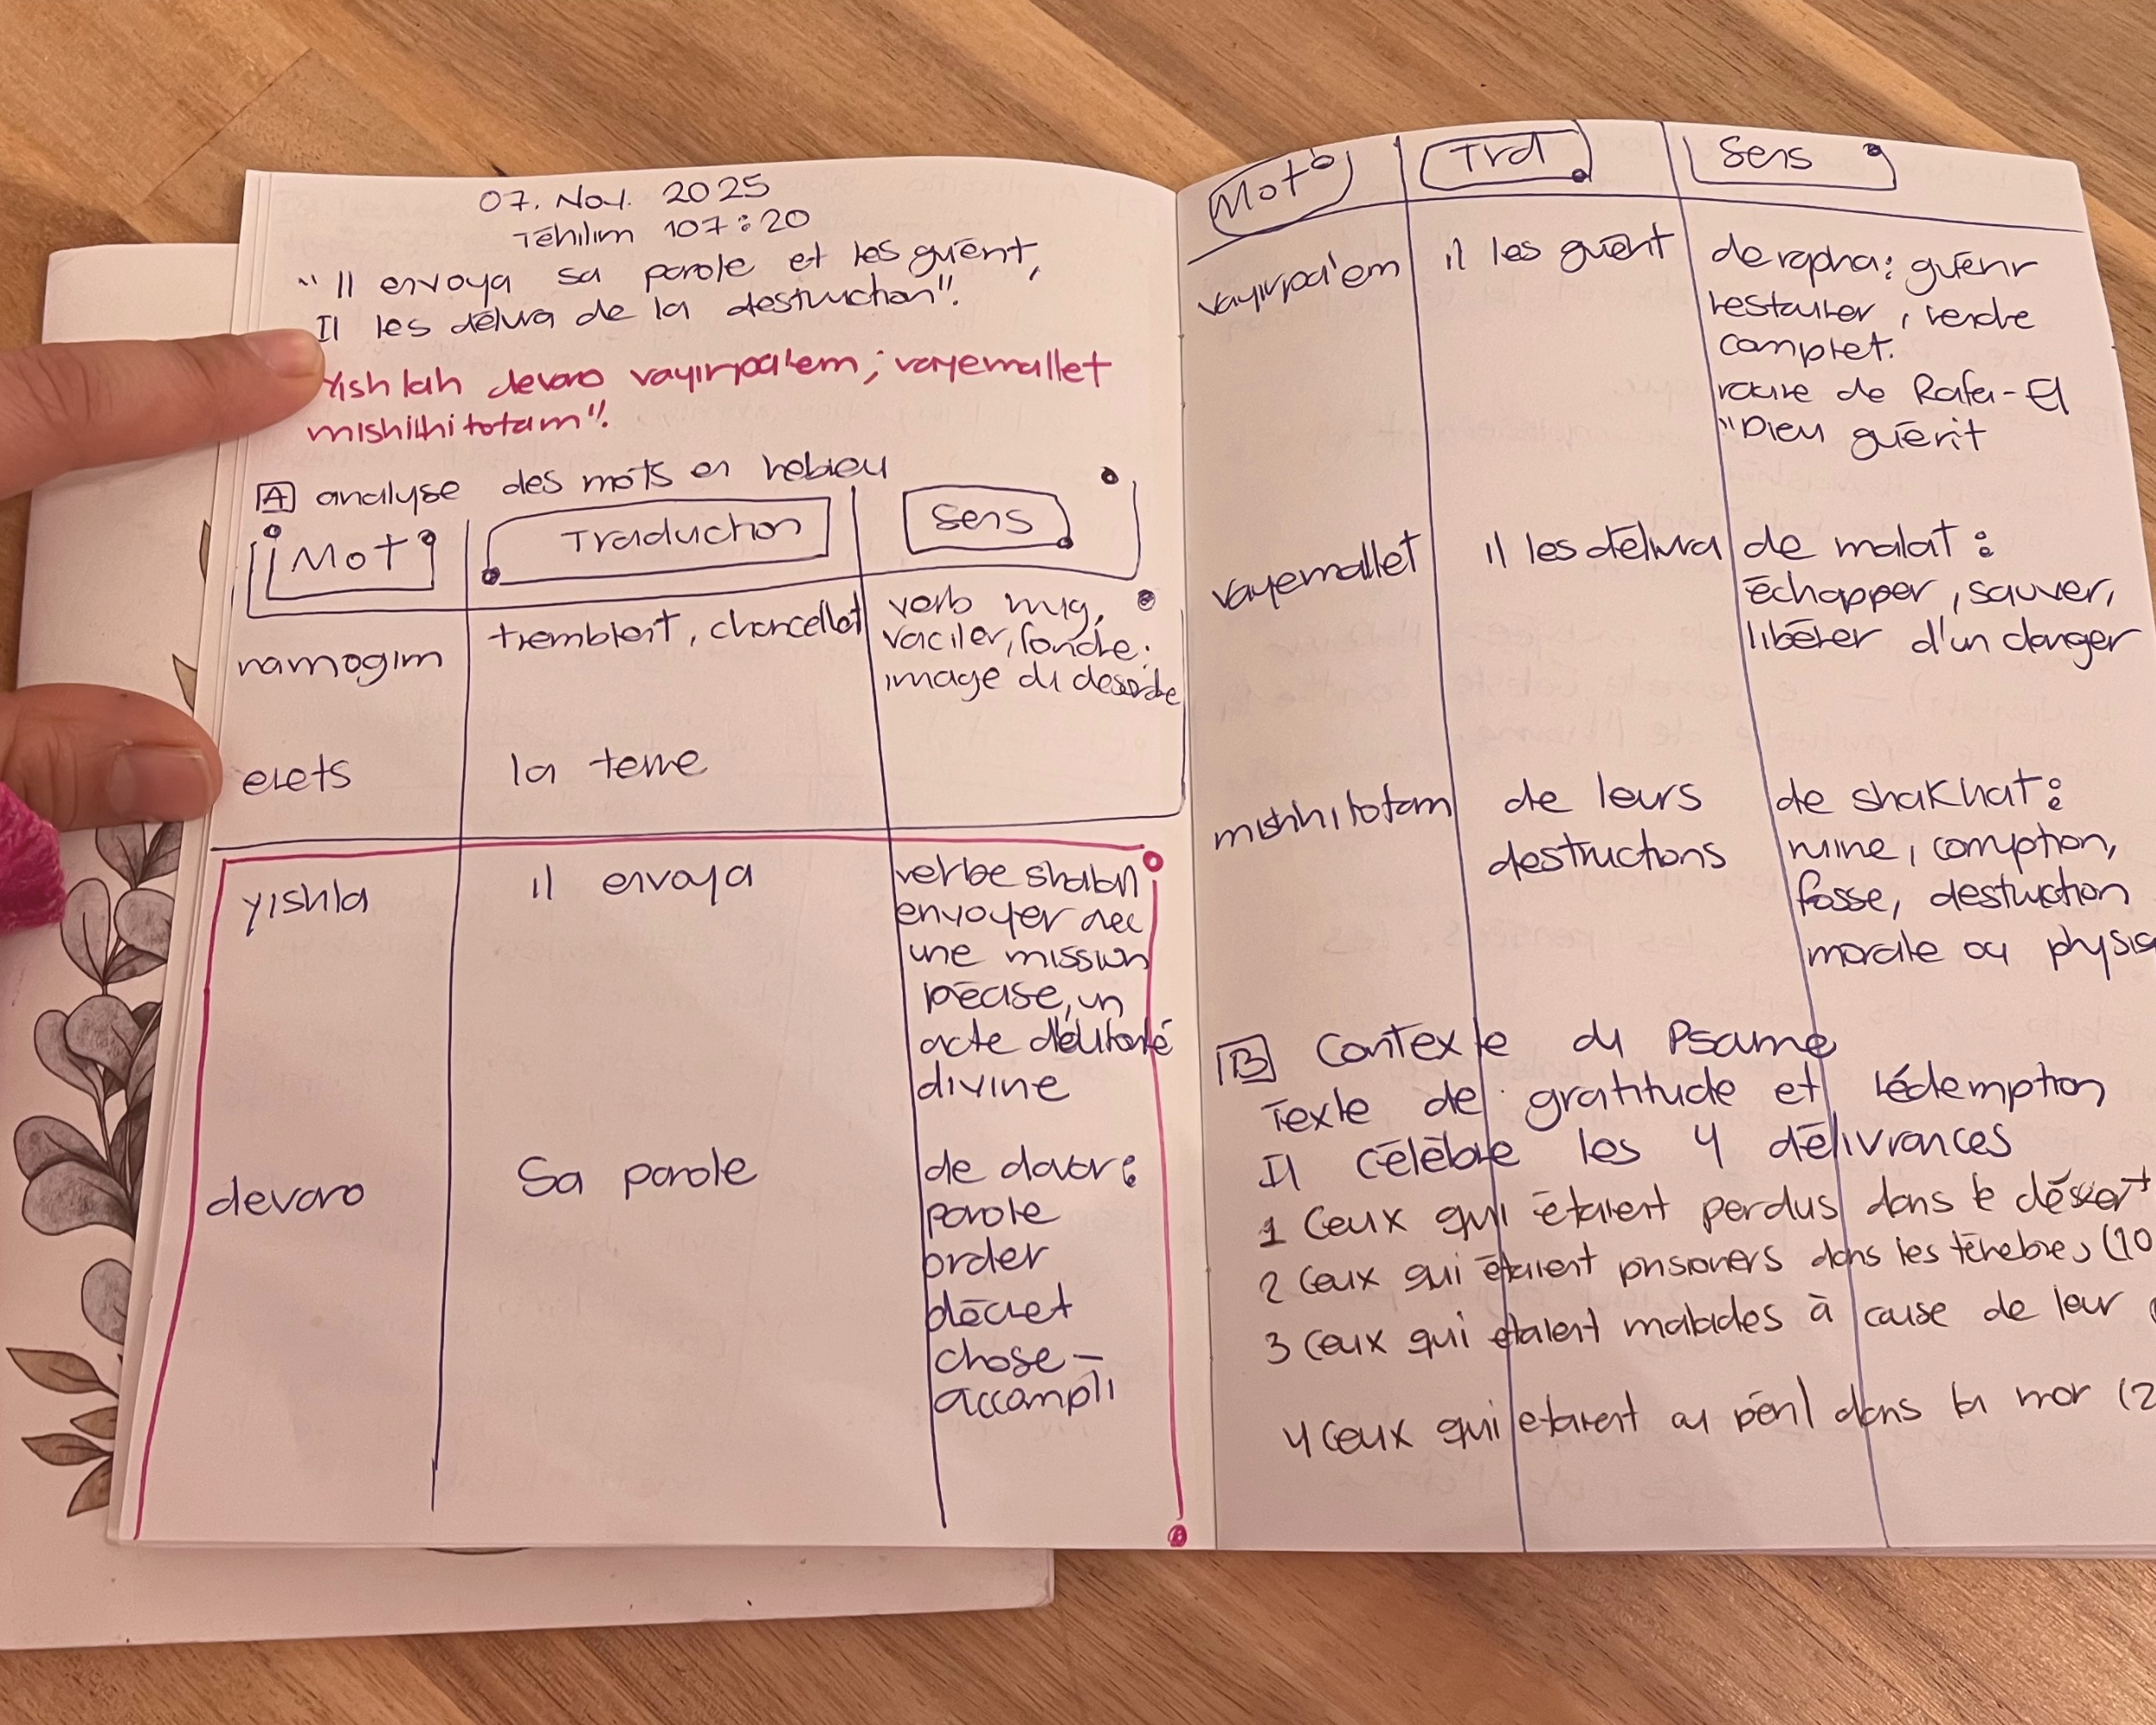 07. Nov. 2025
Téhilim 107:20
"Il envoya sa parole et les guérit,
Il les délivra de la destruction".
Yishlah devaro vayirpa'em; vayemallet
mishihitotam".
A analyse des mots en hébreu
Mot Traduction Sens
namogim tremblent, chancellent verb mug,
vaciler, fondre.
image du desordre
erets la terre
yishla il envoya verbe shalah
envoyer avec
une mission
précise, un
acte d'autorité
divine
devaro Sa parole de davar:
parole
order
décret
chose-
accompli
Mot Trd Sens
vayirpa'em il les guérit de rapha: guérir
restaurer, rendre
complet.
racine de Rafa-El
"Dieu guérit
vayemallet il les délivra de malat:
échapper, sauver,
libérer d'un danger
mishhitotam de leurs destructions de shakhat:
ruine, corruption,
fosse, destruction
morale ou physiq
B Contexte du Psame
Texte de gratitude et rédemption
Il célèbre les 4 délivrances
1 Ceux qui étaient perdus dans le désert
2 Ceux qui étaient prisoners dans les ténèbres (10
3 Ceux qui étaient malades à cause de leur
4 Ceux qui etaient au péril dans la mer (2